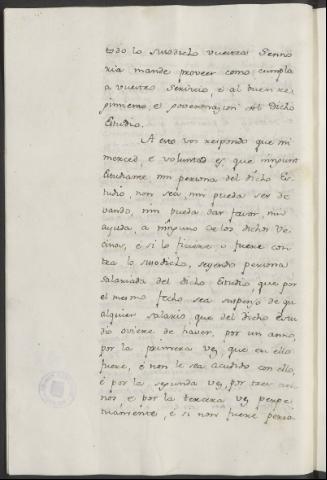 todo lo susodicho vuestra Senno
ria mande proveer como cumpla
a vuestro servicio, e al buen re
gimiento, e governacion del dicho
Estudio.
A esto vos respondo que mi
merced, e voluntad es, que ningun
Estudiante nin persona del dicho Es
tudio, non sea, nin pueda ser de
vando, nin pueda dar favor, nin
ayuda a ninguno de los dichos Ve
cinos, e si lo ficiere o fuere con
tra lo susodicho, seyendo persona
salariada del dicho Estudio, que por
el mesmo fecho sea suspenso de qu
alquier salario, que del dicho Estu
dio oviere de haver, por un anno,
por la primera vez, que en ello
fuere, e non le sea acudido con ello,
e por la segunda vez, por tres an
nos e por la tercera vez perpe
tuamente, e si non fuere perso